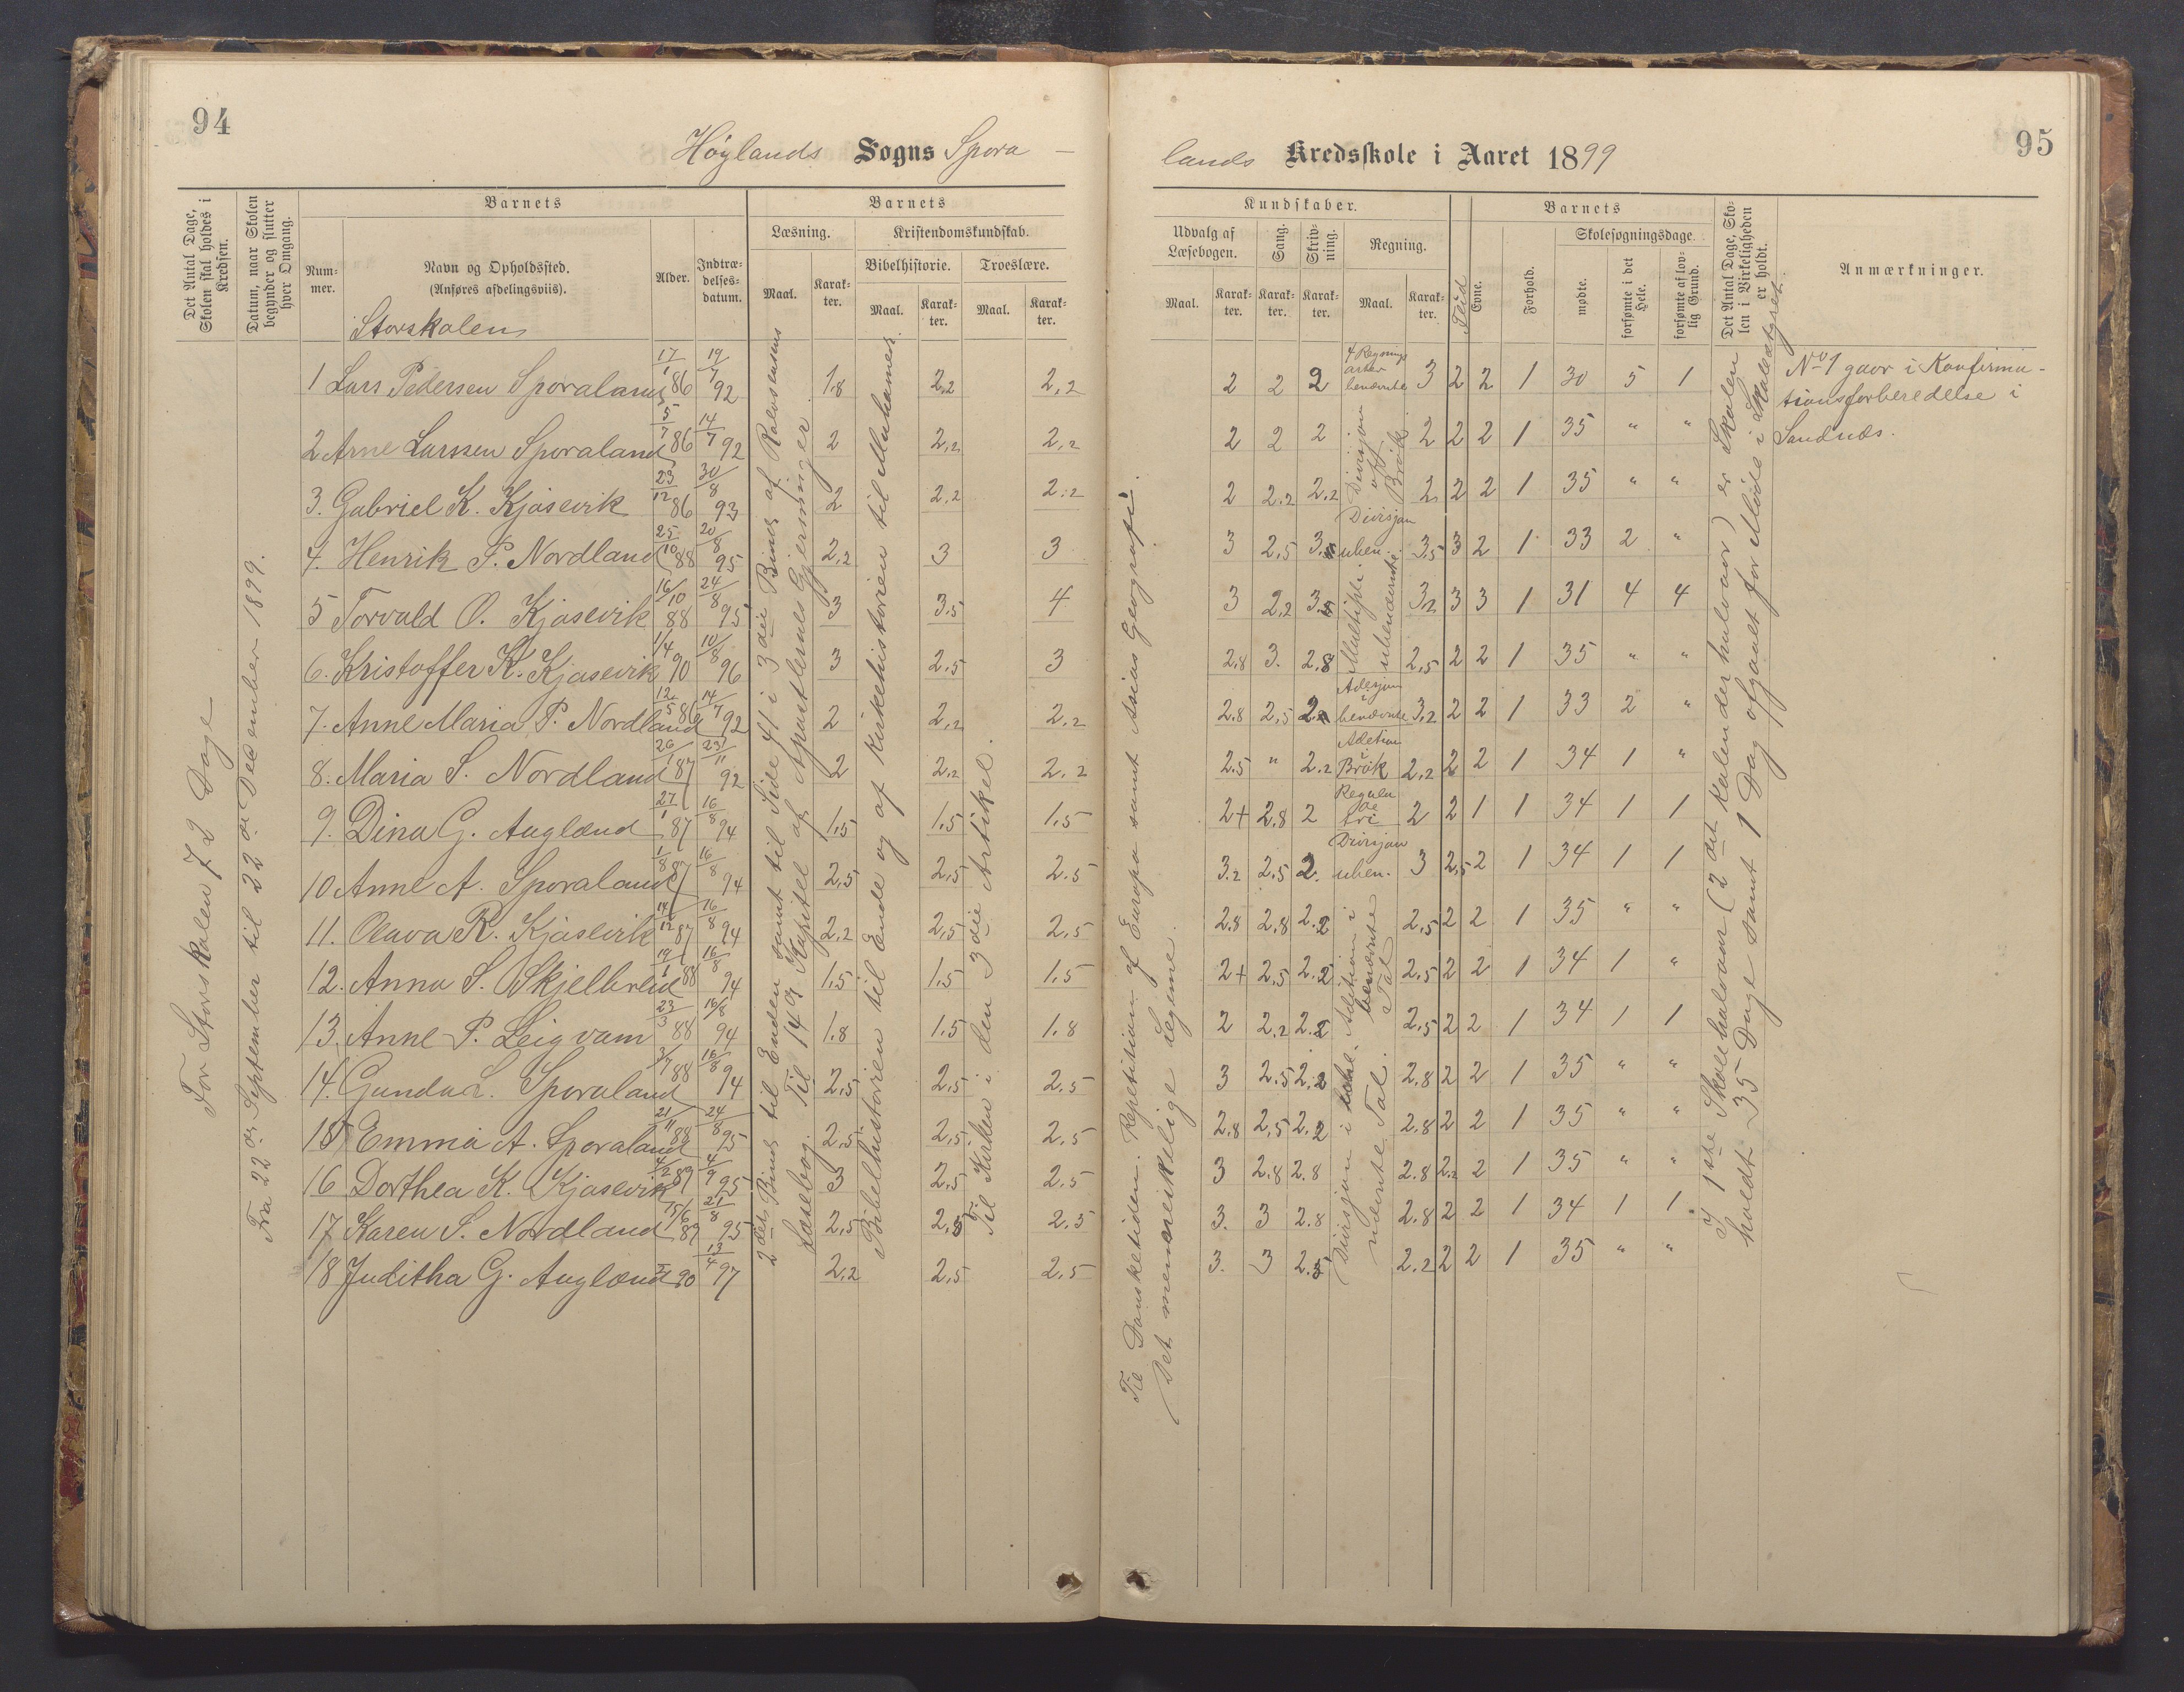 94
Høylands Sogns Spora-
Det Antal Dage, Skolen skal holdes i Kredsen.
Datum, naar Skolen begynder og slutter hver Omgang.
Barnets
Nummer.
Navn og Opholdssted.
(Anføres afdelingsviis).
Alder.
Indtrædelsesdatum.
Barnets
Læsning.
Maal.
Karakter.
Kristendomskundskab.
Bibelhistorie.
Maal.
Karakter.
Troeslære.
Maal.
Karakter.
Storskolen
For Storskolen 72 Dage
Fra 22de September til 22de December 1899.
1 Lars Pedersen Sporaland 17/1 86 19/7 92 1.8 2,2 2,2
2 Arne Larssen Sporaland 5/7 86 14/7 92 2 2,2 2,2
3. Gabriel K. Kjosevik 23/12 86 30/8 93 2 2,2 2.2
4. Henrik P. Nordland 25/10 88 20/8 95 2,2 3 3
5 Torvald O. Kjosevik 16/10 88 24/8 95 3 3.5 4
6. Kristoffer K. Kjosevik 1/4 90 10/8 96 3 2,5 3
7. Anne Maria P. Nordland 12/5 86 14/7 92 2 2,2 2,2
8. Maria S. Nordland 26/1 87 23/11 92 2 2,2 2,2
9. Dina G. Auglænd 27/1 87 16/8 94 1,5 1,5 1,5
10 Anne A. Sporaland 1/8 87 16/8 94 2,5 2,5 2.5
11. Olava R. Kjosevik 14/12 87 16/8 94 2,2 2,5 2,5
12. Anna S. Skjelbreid 19/1 88 16/8 94 1,5 1,5 1.5
13. Anne P. Leigvam 23/3 88 16/8 94 1.8 1.5 1.8
14. Gunda L. Sporaland 3/7 88 16/8 94 2,5 2,5 2.5
15 Emma A. Sporaland 21/11 88 24/8 95 2,5 2,5 2.5
16 Dorthea K. Kjosevik 4/2 89 4/9 95 3 2,5 2.5
17 Karen S. Nordland 15/6 89 21/8 95 2,5 2,5 2.5
18 Juditha G. Auglænd 90 13/4 97 2,2 2,5 2.5
2det Bind til Enden samt til Side 41 i 3die Bind af Rolvsensens
Læsebog. Til 149 Kapitel af Apostlernes Gjerninger.
Bibelhistorien til Ende og af Kirkehistorien til Muhamed.
Til Kirken i den 3die Artikel.
95
lands Kredsskole i Aaret 1899
Kundskaber.
Udvalg af Læsebogen.
Maal.
Karakter.
Sang.
Karakter.
Skrivning.
Karakter.
Regning.
Maal.
Karakter.
Flid
Barnets
Evne.
Forhold.
Skolesøgningsdage.
mødte.
forsømte i det Hele.
forsømte af lovlig Grund.
Det Antal Dage, Skolen i Virkeligheden er holdt.
Anmærkninger.
Til Dansketiden. Repetition af Europa samt Asiens Geografi.
Det menneskelige Legeme.
2 2 2 4 Regningsarter benævnte 3 2 2 1 30 5 1
2 2 2 Divisjon af Brøk 2 2 2 1 35 " "
2 2.2 2,2 2 2 2 1 35 " "
3 2,5 3.5 Divisjon uben. 3,5 3 2 1 33 2 "
3 2,2 3.5 Multipli. ubenævnte 3,2 3 3 1 31 4 4
2.8 3. 2.8 2,5 2 2 1 35 " "
2.8 2,5 2.2 Adisjon i benævnte 3,2 2 2 1 33 2 "
2.5 " 2.2 Adition i Brøk 2,2 2 2 1 34 1 "
2+ 2.8 2 Regula de tri 2 2 1 1 34 1 1
3.2 2.5 2. Divisjon uben. 3 2,5 2 1 34 1 1
2.8 2.8 2.2 Adition i benævnte Tal 2,5 2 2 1 35 " "
2+ 2,5 2.2 2.5 2 2 1 34 1 "
2 2.2 2.2 2.5 2 2 1 34 1 1
3 2.5 2.2 Divisjon i ubenævnte Tal. 2.8 2 2 1 35 " "
2.8 2,5 2.2 2.8 2 2 1 35 " "
3 2.8 2.8 2.8 2,2 2 1 35 " "
3. 3 2.8 2.8 2 2 1 34 1 1
3. 3 2.5 2.2 2 2 1 35 " "
I 1ste Skolehalvaar (2det Kalenderhalvaar) er Skolen
holdt 35 Dage samt 1 Dag afgaaet for Møde i Skolestyret.
No 1 gaar i Konfirma-
tionsforberedelse i
Sandnæs.